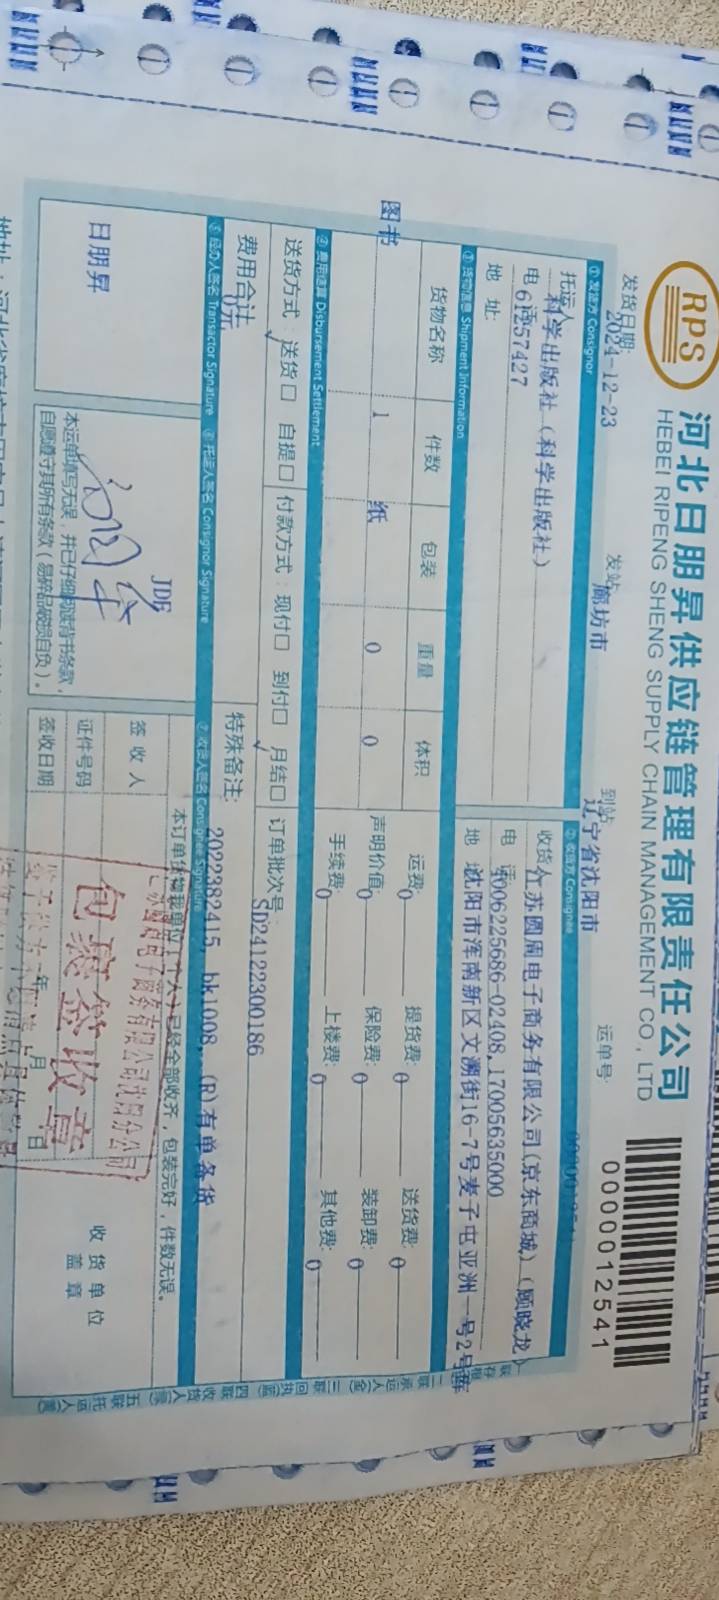 RPS
河北日朋昇供应链管理有限责任公司
HEBEI RIPENG SHENG SUPPLY CHAIN MANAGEMENT CO., LTD
0000012541
发货日期: 2024-12-23
发站: 廊坊市
到站: 辽宁省沈阳市
运单号:
① 发货方 Consignor
② 收货方 Consignee
托运人 科学出版社(科学出版社)
收货人 江苏圆周电子商务有限公司(京东商城)(顾晓龙)
电 话 61257427
电 话 4006225686-02408,17005635000
地 址:
地 址 沈阳市浑南新区文溯街16-7号麦子屯亚洲一号2号库
③ 货物信息 Shipment Information
货物名称 件数 包装 重量 体积
运费: 0 提货费: 0 送货费: 0
图书 1 纸 0 0
声明价值: 0 保险费: 0 装卸费: 0
手续费: 0 上楼费: 0 其他费: 0
④ 费用结算 Disbursement Settlement
送货方式: 送货□ 自提□ 付款方式: 现付□ 到付□ 月结□ 订单批次号: SD24122300186
费用合计: 0元
特殊备注: 2022382415, bk1008, (R)有单备货
⑤ 经办人签名 Transactor Signature ⑥ 托运人签名 Consignor Signature ⑦ 收货人签名 Consignee Signature
日朋昇
JDE
本运单填写无误,并已仔细阅读背书条款,
自愿遵守其所有条款(易碎品破损自负)。
本订单货物我单位(个人)已经全部收齐,包装完好,件数无误。
签 收 人
证件号码
签收日期 年 月 日
收 货 单 位
盖 章
电子商务有限公司沈阳分公司
包裹签收章